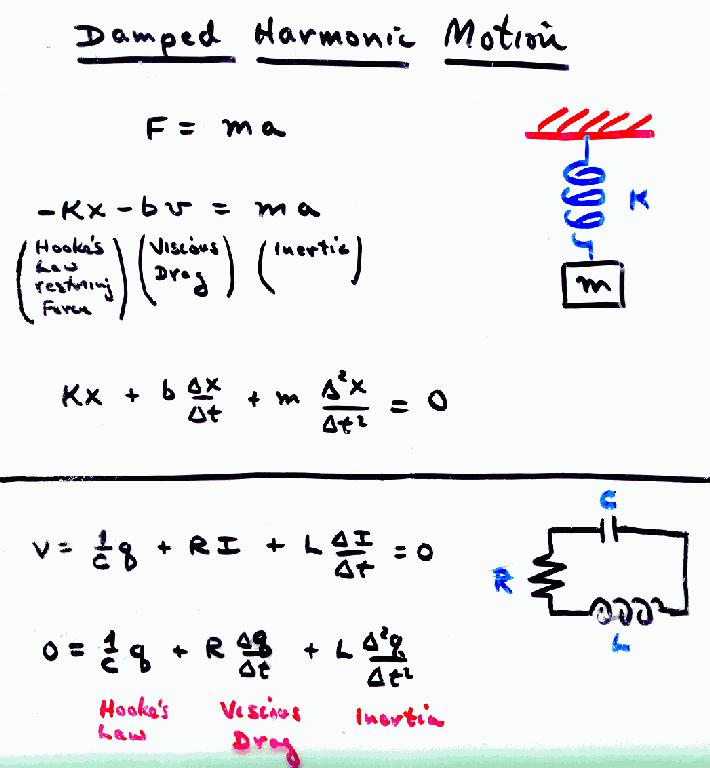 Damped Harmonic Motion
F = ma
K
-Kx - bv = ma
(Hooke's Law restring Force) (Viscious Drag) (Inertia)
m
Kx + b Δx/Δt + m Δ²x/Δt² = 0
C
V = 1/C q + RI + L ΔI/Δt = 0
R
L
0 = 1/C q + R Δq/Δt + L Δ²q/Δt²
Hooke's Viscious Inertia
Law Drag